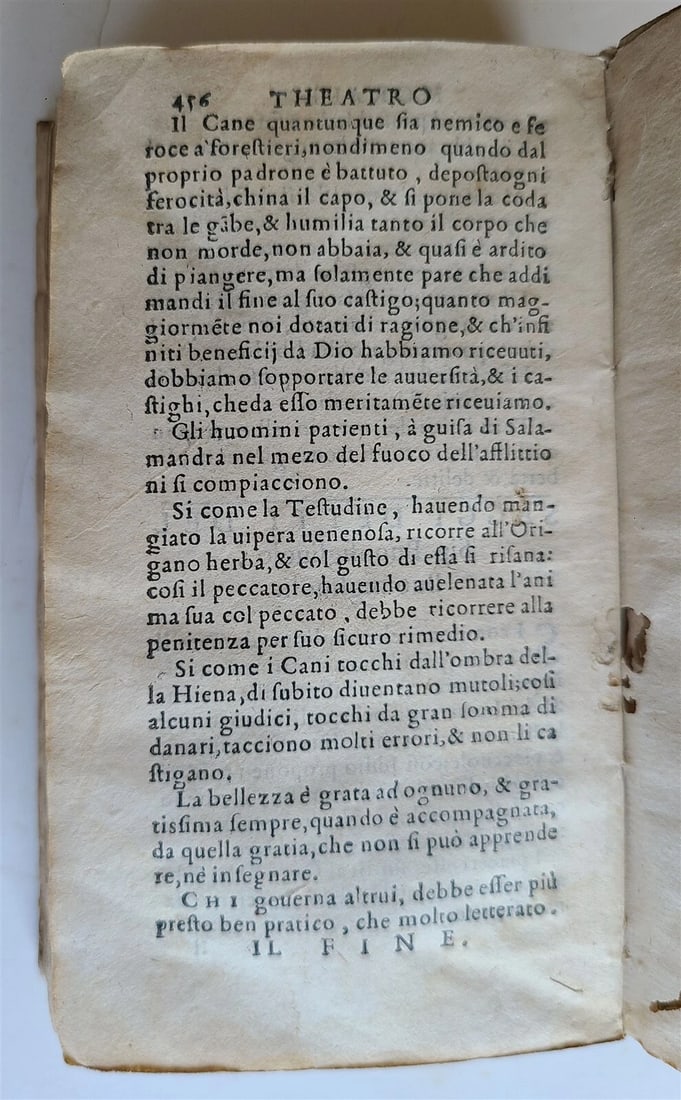 456 THEATRO
Il Cane quantunque ſia nemico e fe
roce a'foreſtieri,nondimeno quando dal
proprio padrone è battuto , depoſtaogni
ferocità,china il capo, & ſi pone la coda
tra le gãbe,& humilia tanto il corpo che
non morde,non abbaia, & quaſi è ardito
di piangere,ma ſolamente pare che addi
mandi il fine al ſuo caſtigo;quanto mag-
giormẽte noi dotati di ragione,& ch'infi
niti beneficij da Dio habbiamo riceuuti,
dobbiamo ſopportare le auuerſità,& i ca-
ſtighi,cheda eſſo meritamẽte riceuiamo.
Gli huomini patienti , à guiſa di Sala-
mandra nel mezo del fuoco dell'afflittio
ni ſi compiacciono.
Si come la Teſtudine , hauendo man-
giato la uipera uenenoſa, ricorre all'Ori-
gano herba,& col guſto di eſſa ſi riſana:
coſi il peccatore,hauendo auelenata l'ani
ma ſua col peccato , debbe ricorrere alla
penitenza per ſuo ſicuro rimedio.
Si come i Cani tocchi dall'ombra del-
la Hiena,di ſubito diuentano mutoli;coſi
alcuni giudici, tocchi da gran ſomma di
danari,tacciono molti errori,& non li ca
ſtigano.
La bellezza è grata ad ognuno, & gra-
tiſſima ſempre,quando è accompagnata,
da quella gratia,che non ſi può apprende
re,nè inſegnare.
CHI gouerna altrui, debbe eſſer più
preſto ben pratico , che molto letterato.
IL FINE.